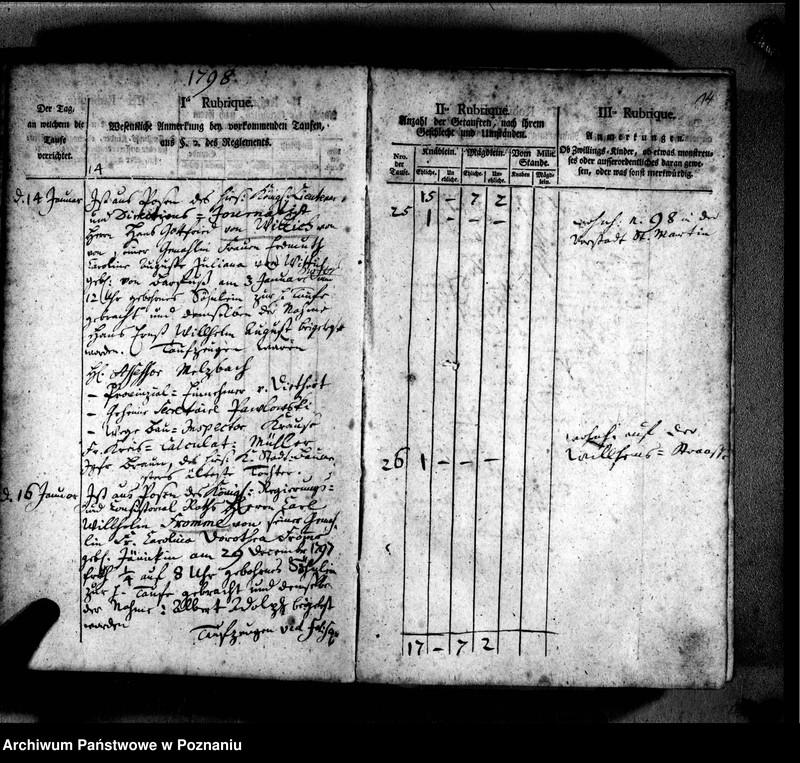 1798.
14
Der Tag,
an welchem die
Taufe
verrichtet.
I^te Rubrique.
Wesentliche Anmerkung bey vorkommenden Taufen,
aus §. 2. des Reglements.
14
d. 14 Januar
Ist aus Posen des hies. Königl.
und Directions =
Herrn Hans Gottfried von Wittich von
von seiner Gemahlin Frauen
Caroline Auguste Juliana von
geb. von am 3 Januar
12 Uhr gebohrnes Söhnlein zur h. Taufe
gebracht und demselben die Nahme
Hans Ernst Willhelm August beigelegt
worden. Taufzeugen waren
H. Assessor Melzbach
– Provinzial = Einnehmer v.
– Geheime Secretair Pawlowski
– Wege Bau = Inspector Krause
Fr. Kreis = Calculat: Müller
des hies. K. Stadt
älteste Tochter.
d. 16 Januar
Ist aus Posen des Königl: Regierungs =
und Consistorial Raths Herrn Carl
Willhelm Fromme von seiner Gemah-
lin Fr. Carolina Dorothea Fromme
geb. am 29 December 1797
früh 1/4 auf 8 Uhr gebohrnes Söhnlein
zur h. Taufe gebracht und demselben
der Nahme: Albert Adolph beigelegt
worden
Taufzeugen
II^te Rubrique.
Anzahl der Getauften, nach ihrem
Geschlecht und Umständen.
Nro.
der
Taufe.
Knäblein.
Mägdlein.
Vom Milit.
Stande.
Eheliche.
Un-
eheliche.
Eheliche.
Un-
eheliche.
Knaben
Mägd-
lein.
15 – 7 2
25 1 – – –
26 1 – – –
17 – 7 2
III^te Rubrique.
Anmerkungen.
Ob Zwillings-Kinder, ob etwas monstreu-
ses oder ausserordentliches daran gewe-
sen, oder was sonst merkwürdig.
wohnh. N. 98 in der
Vorstadt St. Martin
wohnh. auf der
Willhelms = Straasse
Archiwum Państwowe w Poznaniu